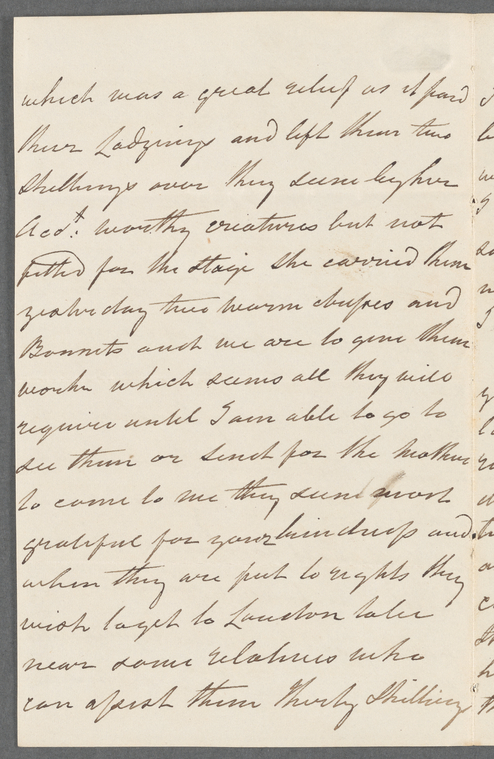 which was a great relief as it paid
their Lodgings and left them two
Shillings over they seem by her
Acct. worthy creatures but not
fitted for the Stage She carried them
yesterday two warm dresses and
Bonnets and we are to give them
work which seems all they will
require until I am able to go to
see them or send for the Mother
to come to me they seem most
grateful for your kindness and
when they are put to rights they
wish to get to London to be
near some relatives who
can assist them Thirty Shillings